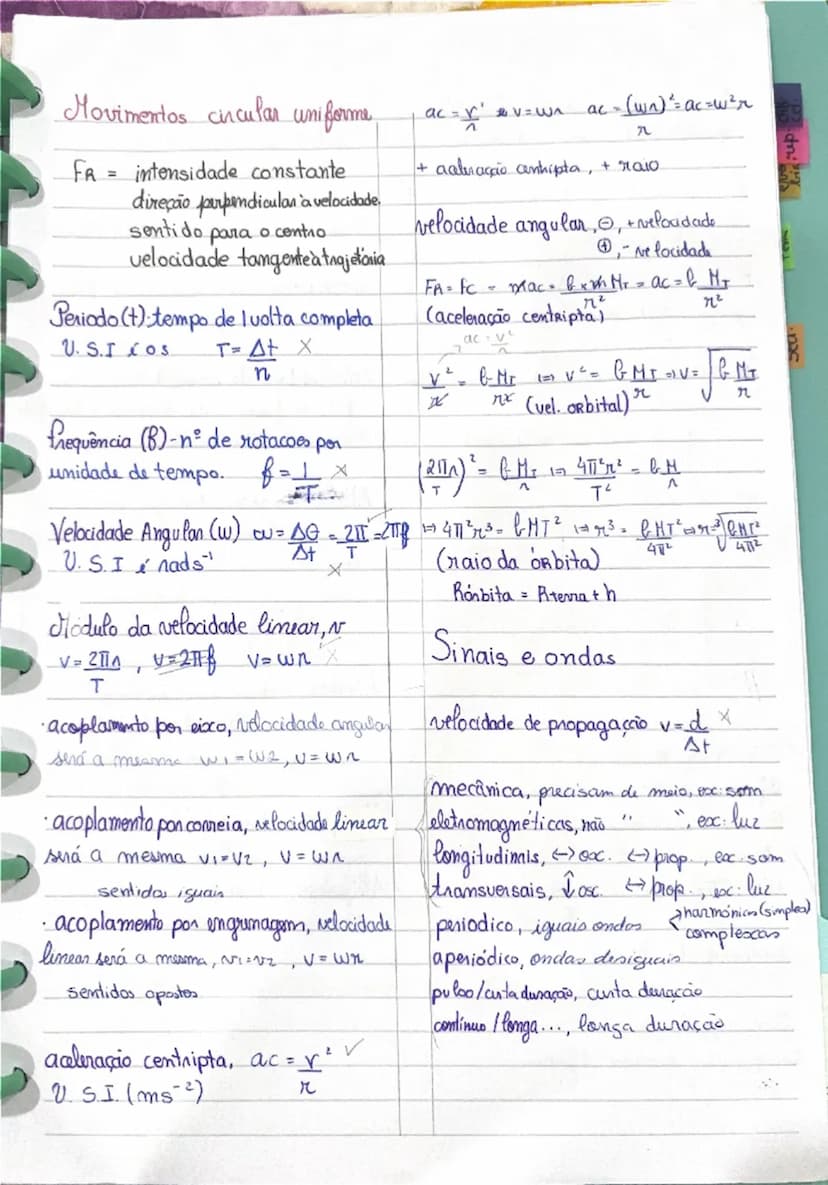 Movimentos circular uniforme
FR = intensidade constante
direção perpendicular à velocidade
sentido para o centro
velocidade tangente à trajetória
Periodo (t): tempo de 1 volta completa
U.S.I é os T = Δt/n X
frequência (f) - nº de rotacoes por
unidade de tempo. f = 1/T X
Velocidade Angular (w) ω = Δθ/Δt = 2π/T = 2πf
U.S.I é rads⁻¹ X
Módulo da velocidade linear, v
v = 2πr/T , v = 2πf v = wr X
· acoplamento por eixo, velocidade angular
será a mesma w1 = w2, v = wr
· acoplamento por correia, velocidade linear
será a mesma v1 = v2 , v = wr
sentidos iguais
· acoplamento por engrenagem, velocidade
linear será a mesma, v1 = v2 , v = wr
sentidos opostos
aceleração centripta, ac = v²/r ✓
U.S.I. (ms⁻²)
ac = v²/r v = wr ac = (wr)²/r = ac = w²r
+ aceleração centripta, + raio
velocidade angular, ⊖, + velocidade
⊕, - velocidade
FR = Fc = mac = G x m MT/r² = ac = G MT/r²
(aceleração centripta)
ac = v²/r
v²/r = G MT/r² ⇔ v² = G MT/r ⇒ v = √(G MT/r)
(vel. orbital)
(2πr/T)² = G MT/r ⇔ 4π²r²/T² = G M/r
⇔ 4π²r³ = GMT² ⇔ r³ = GMT²/4π² ⇔ r = ³√(GMT²/4π²)
(raio da órbita)
Rórbita = Rterra + h
Sinais e ondas
velocidade de propagação v = d/Δt X
mecânica, precisam de meio, ex: som
eletromagnéticas, não " ", ex: luz
longitudinais, ↔ osc. ↔ prop., ex. som
transversais, ↕ osc. ↔ prop., ex: luz
periodico, iguais ondas harmónicas (simples)
complexas
aperiódico, ondas desiguais
pulso/curta duração, curta duração
contínuo / longa ..., longa duração